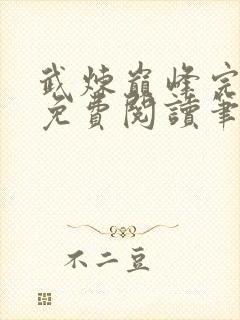 武煉巔峰完
免費閱讀筆
不二豆